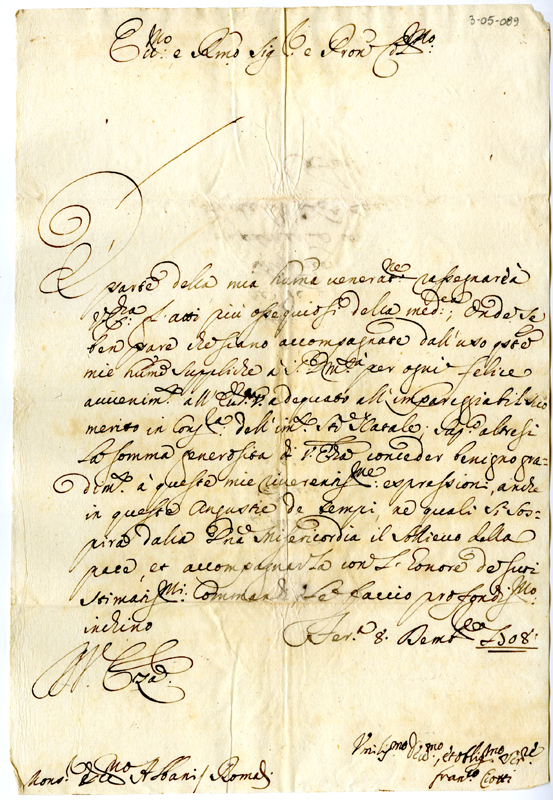 3-05-089
Em.mo e R.mo Sig.r e Pron
È parte della mia hum.a venerat.ne rassegnar à
V. Em.za gl'atti più ossequiosi della med.ma, Onde se
ben pare che siano accompagnate dall'uso q.ste
mie hum.e suppliche à S. D. M.tà per ogni felice
avvenim.to all' Em.za V. adequato all'impareggiabil suo
merito in Cong.ra dell'im.te S.to Natale,
la somma generosità di V. Em.za conceder benigno gra-
dim.to à queste mie riverentiss.me espressioni, anche
in queste Angustie de tempi, ne quali si sos-
pira dalla Div.a Misericordia il sollievo della
pace, et accompagnarla con l'honore de suoi
stimatiss.mi Commandi, e le faccio profondiss.mo
inchino
Fer.a 8. Decemb.re 1708
V. Em.za
Mons. Albani / Roma
Umiliss.mo Dev.mo, et oblig.mo Ser.re
Fran.co Ciotti